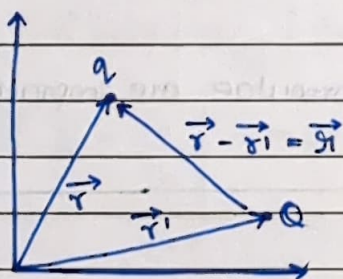 q
r⃗ - r⃗' = 𝓇⃗
r⃗
r⃗'
Q